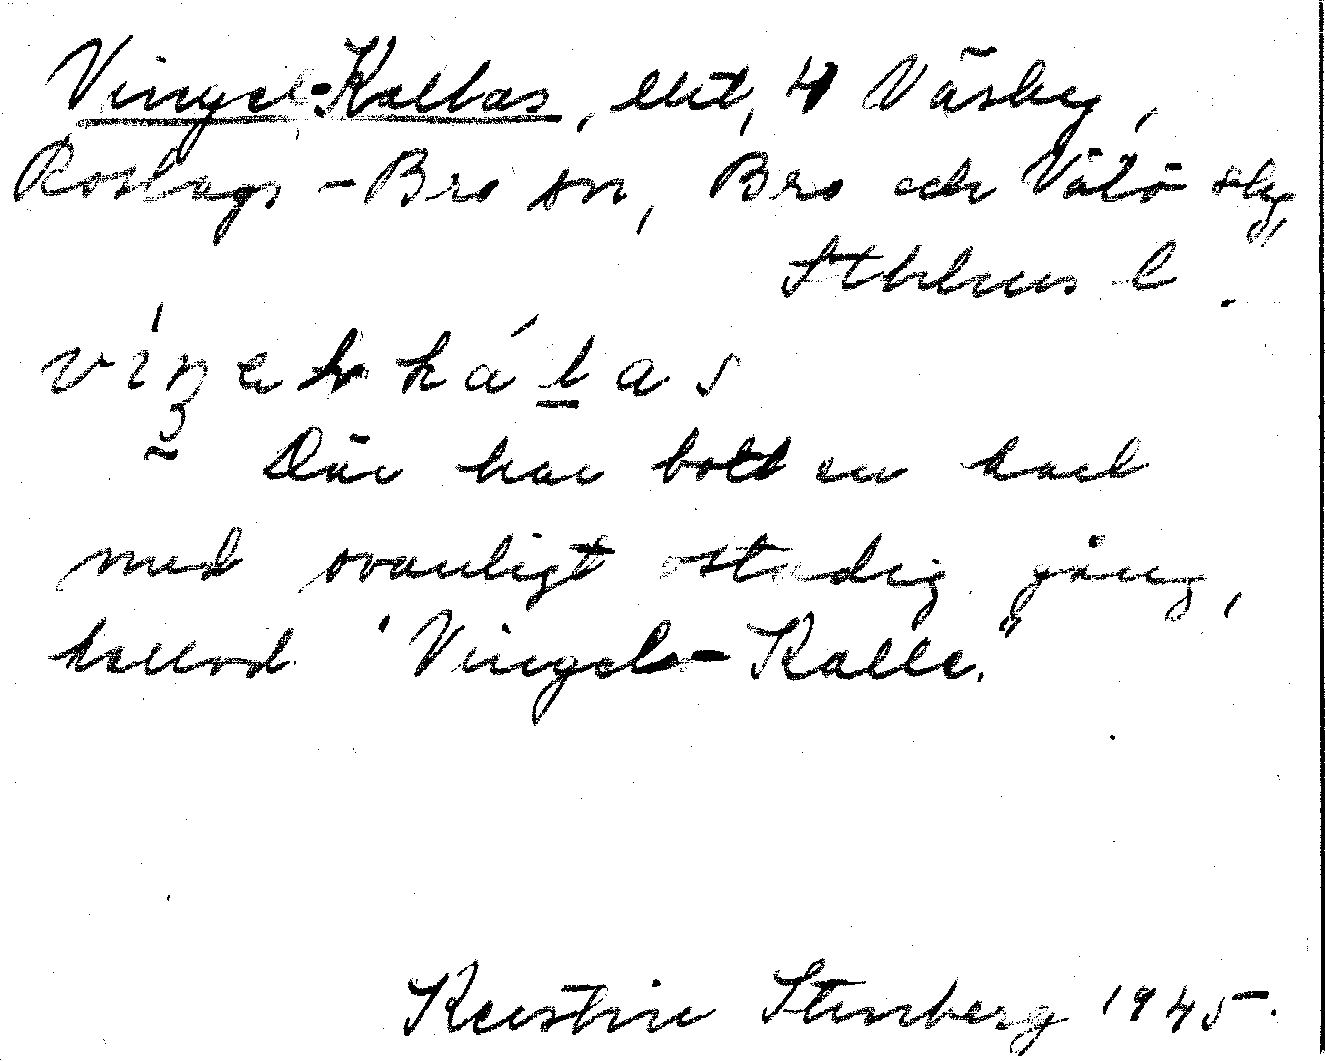 Vingel-Kallas, lht, 4 Väsby,
Roslags-Bro sn, Bro och Vätö skg,
Sthlms l.
Där har bott en karl
med ovanligt ostadig gång,
kallad "Vingel-Kalle."
Kerstin Stenberg 1945.